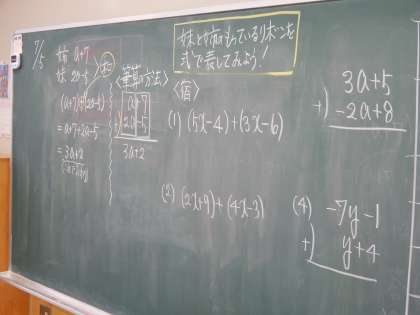 7/5
姉 a+7
妹 2a-5
和
(a+7)+(2a-5)
=a+7+2a-5
=3a+2
〈筆算の方法〉
a+7
2a-5
3a+2
妹と姉のもっているリボンを
式で表してみよう!
〈宿〉
(1) (5x-4)+(3x-6)
(2) (2x+9)+(4x-3)
3a+5
+) -2a+8
(4) -7y-1
+) y+4